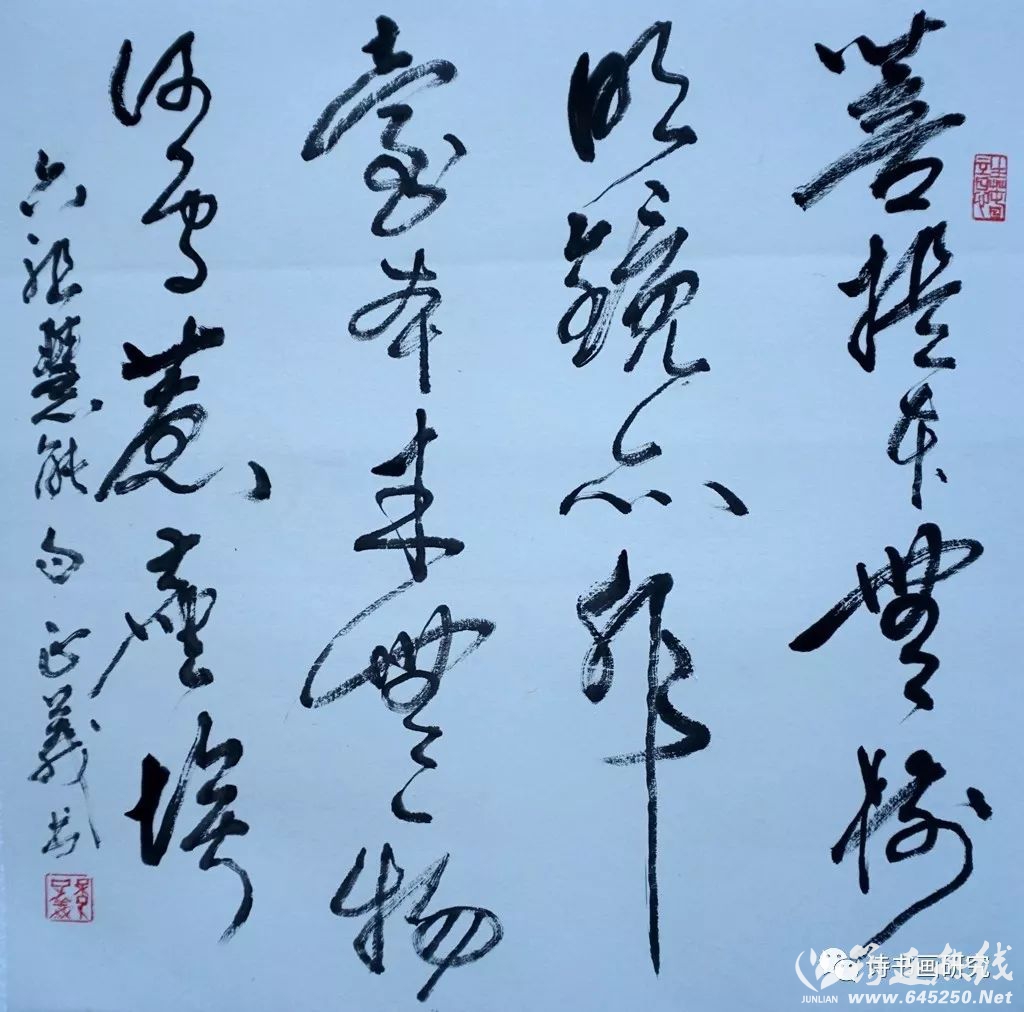 菩提本無樹
明鏡亦非
臺本来無一物
何處惹塵埃
六祖慧能句 正義書
诗书画研究
筠连在线
JUNLIAN www.645250.Net